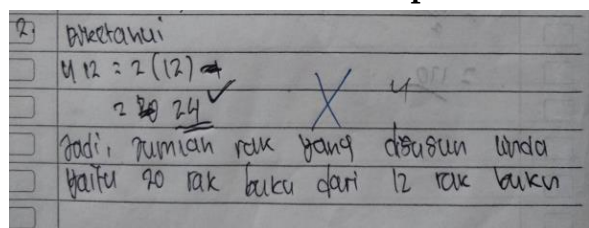 2. Diketahui
U 12 = 2 (12)
= 24 ✓
4
Jadi, Jumlah rak yang disusun Linda
yaitu 20 rak buku dari 12 rak buku